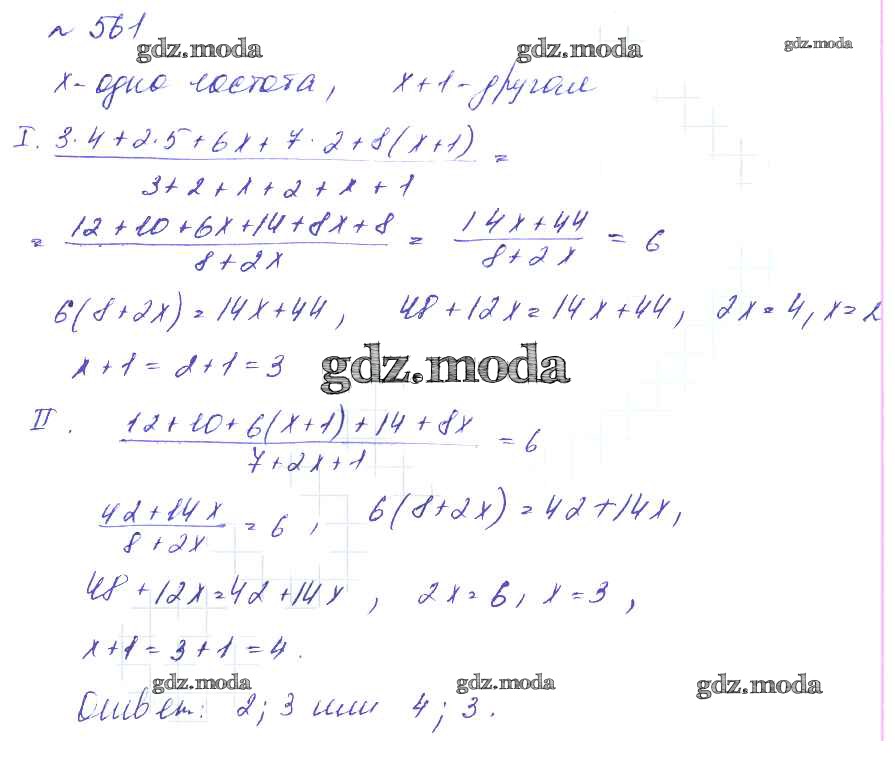 № 561
gdz.moda gdz.moda gdz.moda
x - одна частота, x+1 - другая
I. 3·4+2·5+6x+7·2+8(x+1) =
3+2+x+2+x+1
= 12+10+6x+14+8x+8 = 14x+44 = 6
8+2x 8+2x
6(8+2x)=14x+44, 48+12x=14x+44, 2x=4, x=2
x+1=2+1=3
gdz.moda
II. 12+10+6(x+1)+14+8x = 6
7+2x+1
42+14x = 6, 6(8+2x)=42+14x,
8+2x
48+12x=42+14x, 2x=6, x=3,
x+1=3+1=4.
gdz.moda gdz.moda gdz.moda
Ответ: 2; 3 или 4; 3.